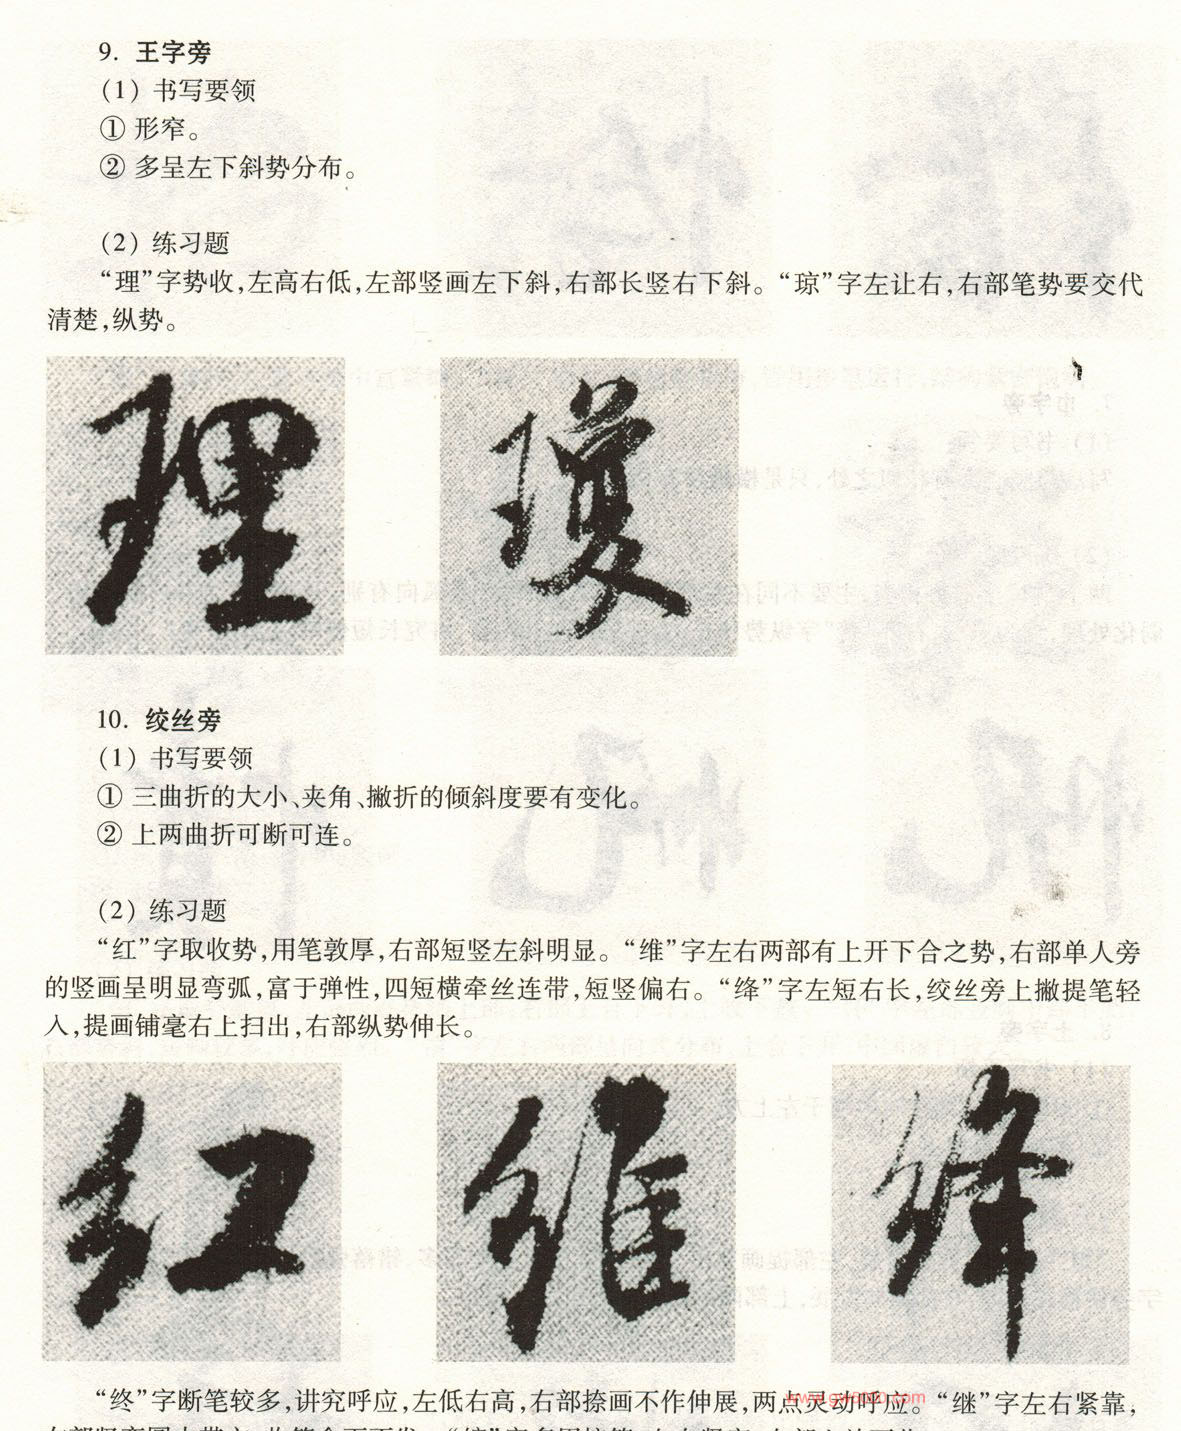 9. 王字旁
(1) 书写要领
① 形窄。
② 多呈左下斜势分布。
(2) 练习题
“理”字势收,左高右低,左部竖画左下斜,右部长竖右下斜。“琼”字左让右,右部笔势要交代
清楚,纵势。
理 瓊
10. 绞丝旁
(1) 书写要领
① 三曲折的大小、夹角、撇折的倾斜度要有变化。
② 上两曲折可断可连。
(2) 练习题
“红”字取收势,用笔敦厚,右部短竖左斜明显。“维”字左右两部有上开下合之势,右部单人旁
的竖画呈明显弯弧,富于弹性,四短横牵丝连带,短竖偏右。“绛”字左短右长,绞丝旁上撇提笔轻
入,提画铺毫右上扫出,右部纵势伸长。
红 維 绛
“终”字断笔较多,讲究呼应,左低右高,右部捺画不作伸展,两点灵动呼应。“继”字左右紧靠,